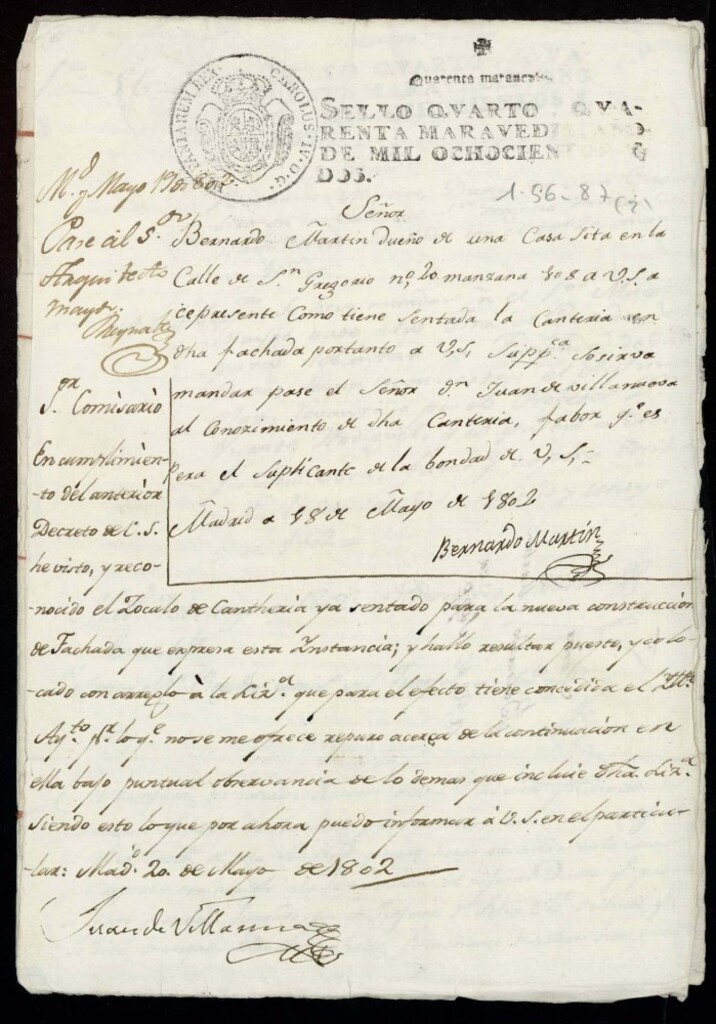 Quarenta maravedis.
SELLO QVARTO, QVA-
RENTA MARAVEDIS, AÑO
DE MIL OCHOCIENTOS Y
DOS.
CAROLUS. IV. D. G. HISPANIAREM REX.
1-56-87 (j)
M.d y Mayo 19 de 802.
Pase al S.or
Arquitecto
mayr.
Señor
Bernardo Martin dueño de una Casa sita en la
Calle de S.n Gregorio n.o 20 manzana 108 a V.S. a
ce presente Como tiene sentada la Canteria en
dha fachada portanto a V,S, supp.ca Sesirva
mandar pase el Señor d.n Juan de villanueva
al Conozimiento de dha Canteria, fabor q.e es
pera el suplicante de la bondad de V,S,
Madrid a 18 de Mayo de 1802
Bernardo Martin
S.or Comisario
En cumplimien-
-to del anterior
Decreto de V.S.
he visto, y reco-
nocido el Zocalo de Cantheria ya sentado para la nueva construccion
de Fachada que expresa esta Instancia; y hallo resultar puesto, y colo
cado con arreglo à la Liz.a que para el efecto tiene concedida el Ill.e
Ay.to p.r lo q.e no se me ofrece reparo acerca de la continuacion en
ella bajo puntual observancia de lo demas que incluie dha. Liz.a
siendo esto lo que por ahora puedo informar à V.S. en el particu-
lar: Mad.d 20. de Mayo de 1802
Juan de Villanueva